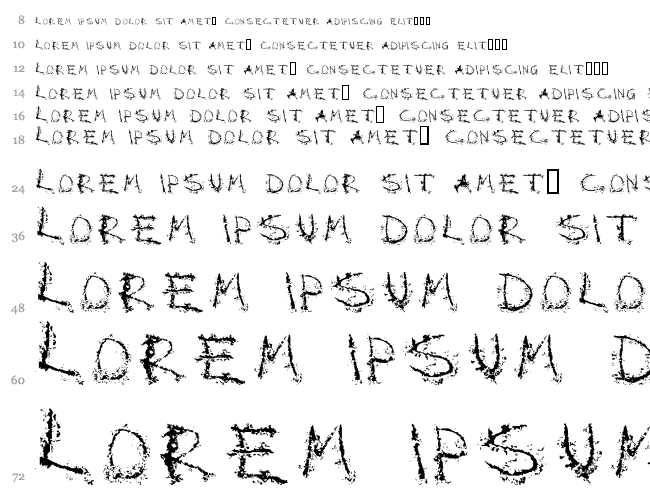 8 LOREM IPSUM DOLOR SIT AMET□ CONSECTETUER ADIPISCING ELIT□□□
10 LOREM IPSUM DOLOR SIT AMET□ CONSECTETUER ADIPISCING ELIT□□□
12 LOREM IPSUM DOLOR SIT AMET□ CONSECTETUER ADIPISCING ELIT□□□
14 LOREM IPSUM DOLOR SIT AMET□ CONSECTETUER ADIPISCING E
16 LOREM IPSUM DOLOR SIT AMET□ CONSECTETUER ADIPIS
18 LOREM IPSUM DOLOR SIT AMET□ CONSECTETUER
24 LOREM IPSUM DOLOR SIT AMET□ CONS
36 LOREM IPSUM DOLOR SIT
48 LOREM IPSUM DOLO
60 LOREM IPSUM D
72 LOREM IPSUM